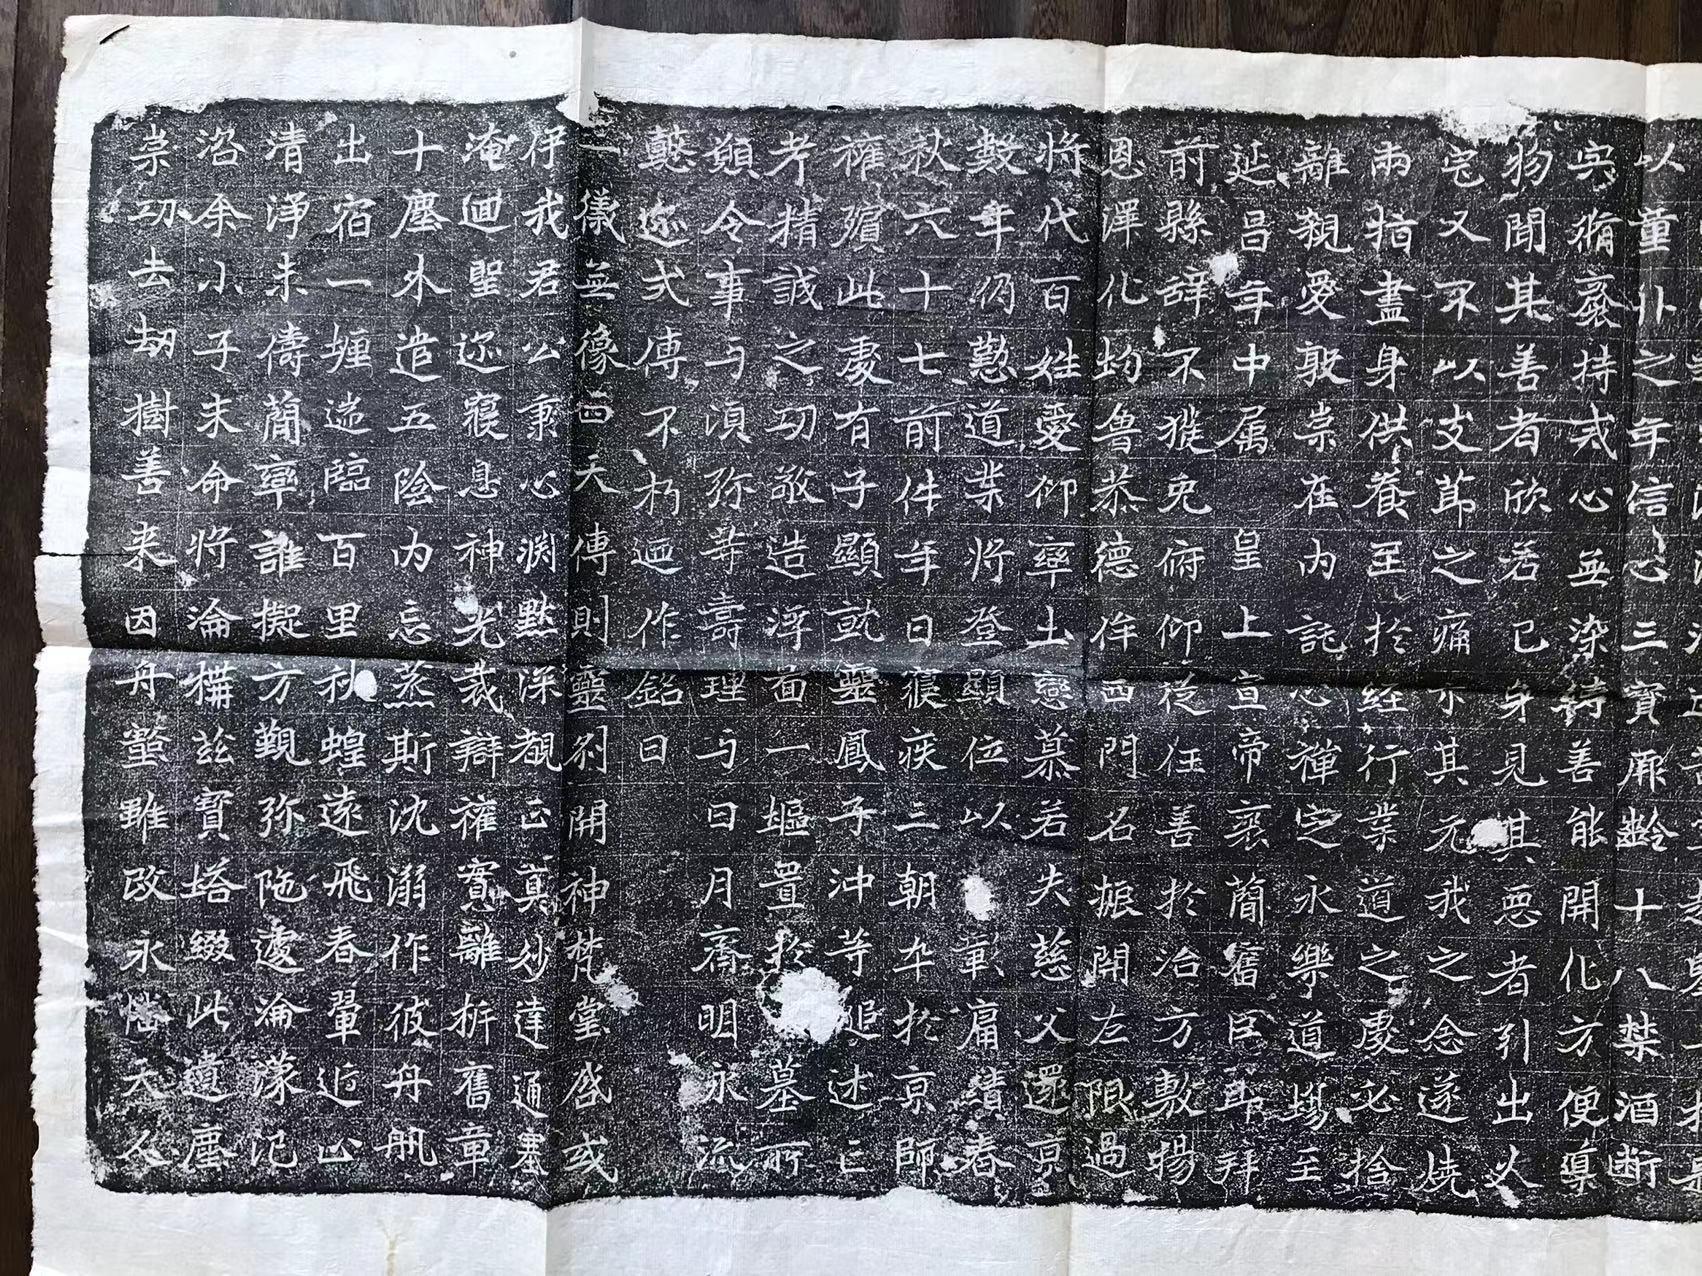 以童丱之年信心三寶厥齡十八禁酒断
宍脩齋持戒心無染待善能開化方便導
物聞其善者欣若已身見其惡者引出火
宅又不以支節之痛示其元我之念遂燒
兩指盡身供養至於經行業道之處必捨
離親愛敦崇在内託心禪定永樂道場至
延昌年中属 皇上宣帝褒簡舊臣郎拜
前縣辞不獲免俯仰從任善於治方敷揚
恩澤化均魯恭德侔西門名振開左限過
將代百姓愛仰率土戀慕若失慈父還京
數年仍懃道業將登顯位以彰篇績春
秋六十七前件年日寢疾三朝卒於京師
權殯此處有子顯就靈鳳子沖等追述亡
考精誠之功敬造浮啚一塸置於墓所
願令事与須弥等壽理与日月齊明永流
懿迹式傳不朽迺作銘曰
二儀無像四天傳則靈剎開神梵堂啓或
伊我君公秉心淵默深覩正真妙達通塞
淹迴聖迹寢息神光裁辯權實離析舊章
十塵外遣五陰内忘蒸斯沈溺作彼舟航
出宿一壥遄臨百里秋蝗遠飛春翬近止
清淨未儔簡率誰擬方覲弥陁遽淪濛汜
洛余小子末命將淪構茲寶塔綴此遺塵
崇功去劫樹善来因舟壑雖改永怙天人